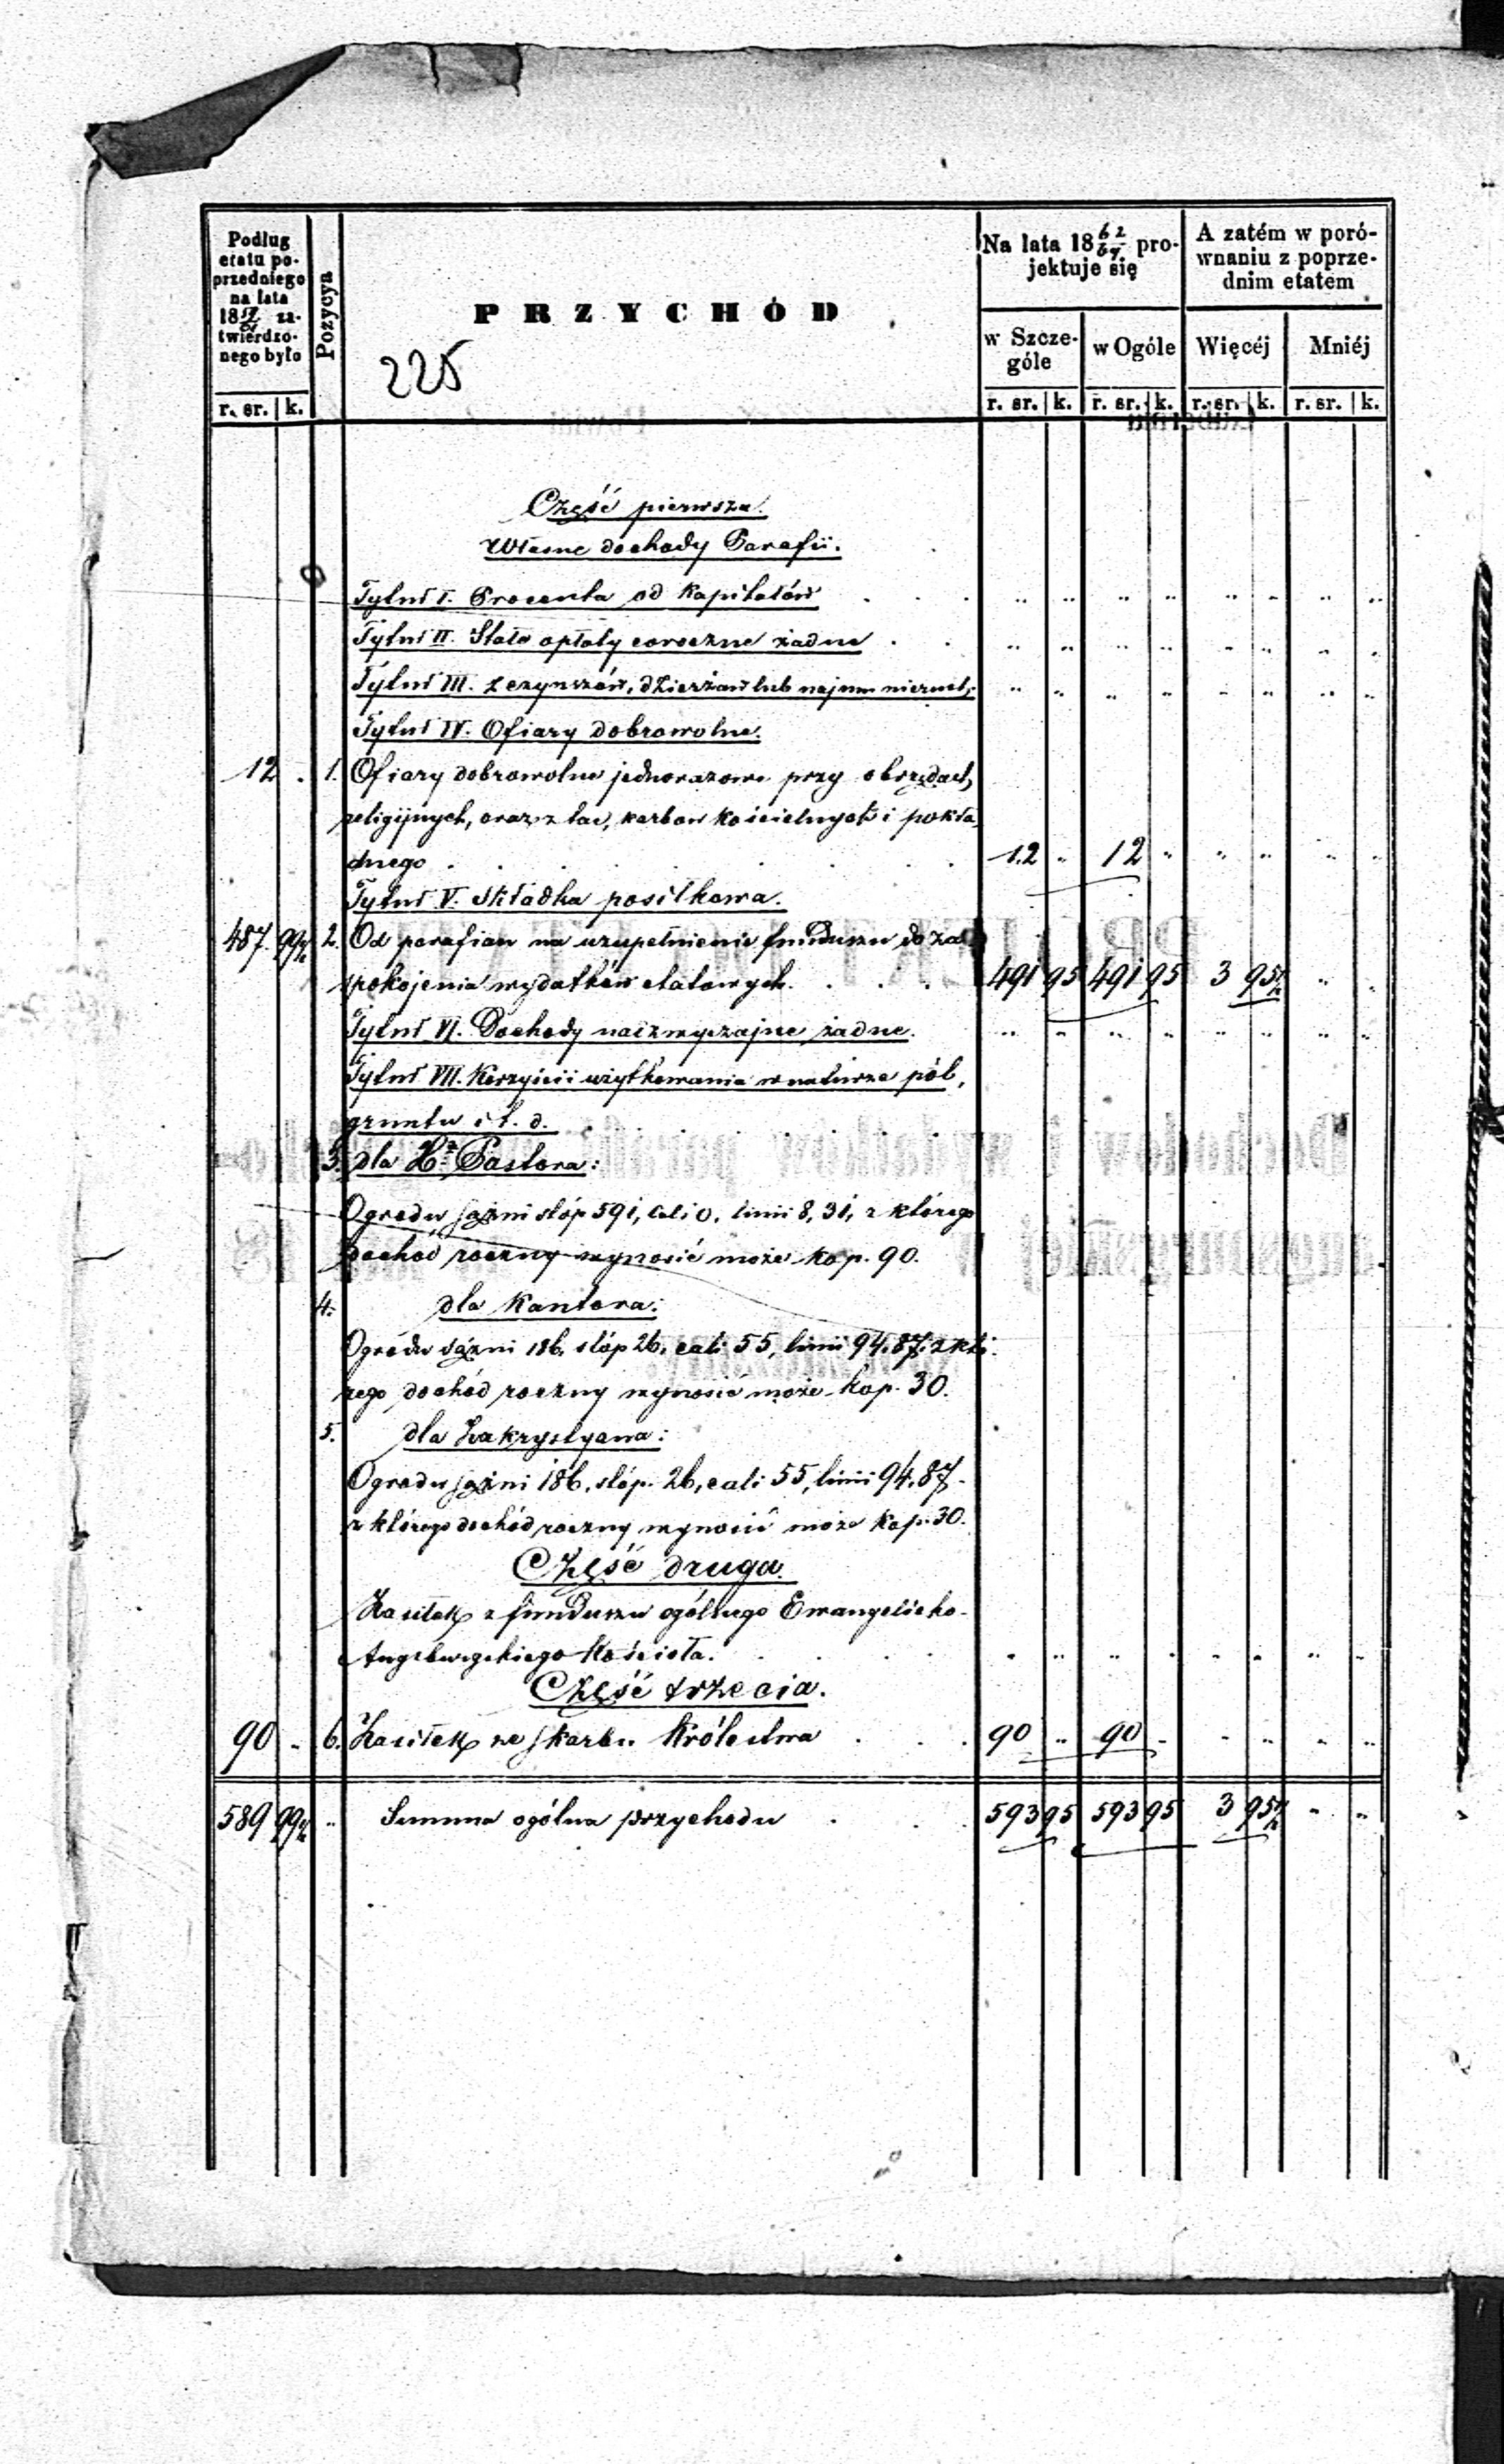 Podług etatu poprzedniego na lata 18 za-
twierdzo-
nego było
Pozycya
PRZYCHÓD
225
Na lata 18 62/67 pro-
jektuje się
A zatém w poró-
wnaniu z poprze-
dnim etatem
w Szcze-
góle
w Ogóle
Więcéj
Mniéj
r. sr. k. r. sr. k. r. sr. k. r. sr. k. r. sr. k.
Część pierwsza.
Własne dochody Parafii.
Tytuł I. Procenta od Kapitałów
Tytuł II. Stałe opłaty coroczne żadne
Tytuł III. z czynszów, dzierżaw lub najmu nieruch:
Tytuł IV. Ofiary dobrowolne.
12 . 1. Ofiary dobrowolne jednorazowe przy obrzędach
religijnych, oraz z tac, karbon kościelnych i pokła-
dnego 12 " 12 " " " " "
Tytuł V. Składka posiłkowa.
487 99½ 2. Od parafian na uzupełnienie funduszu do za-
spokojenia wydatków etatowych 491 95 491 95 3 95½ " "
Tytuł VI. Dochody nadzwyczajne żadne.
Tytuł VII. Korzyści użytkowania w naturze pól,
gruntu i t. d.
3. dla X. Pastora:
Ogrodu sążni stóp 591, cali 0, linii 8, 31, z którego
dochód roczny wynosić może kop. 90.
4. dla Kantora:
Ogrodu sążni 186, stóp 26, cali 55, linii 94.87. z któ-
rego dochód roczny wynosić może kop. 30.
5. dla Zakrystyana:
Ogrodu sążni 186, stóp. 26, cali 55, linii 94.87.
z którego dochód roczny wynosić może kop. 30.
Część druga.
Zasiłek z funduszu ogólnego Ewangelicko-
Augsburgskiego Kościoła.
Część trzecia.
90 " 6. Zasiłek ze skarbu Królestwa 90 " 90 " " " " "
589 99½ " Summa ogólna przychodu 593 95 593 95 3 95½ " "